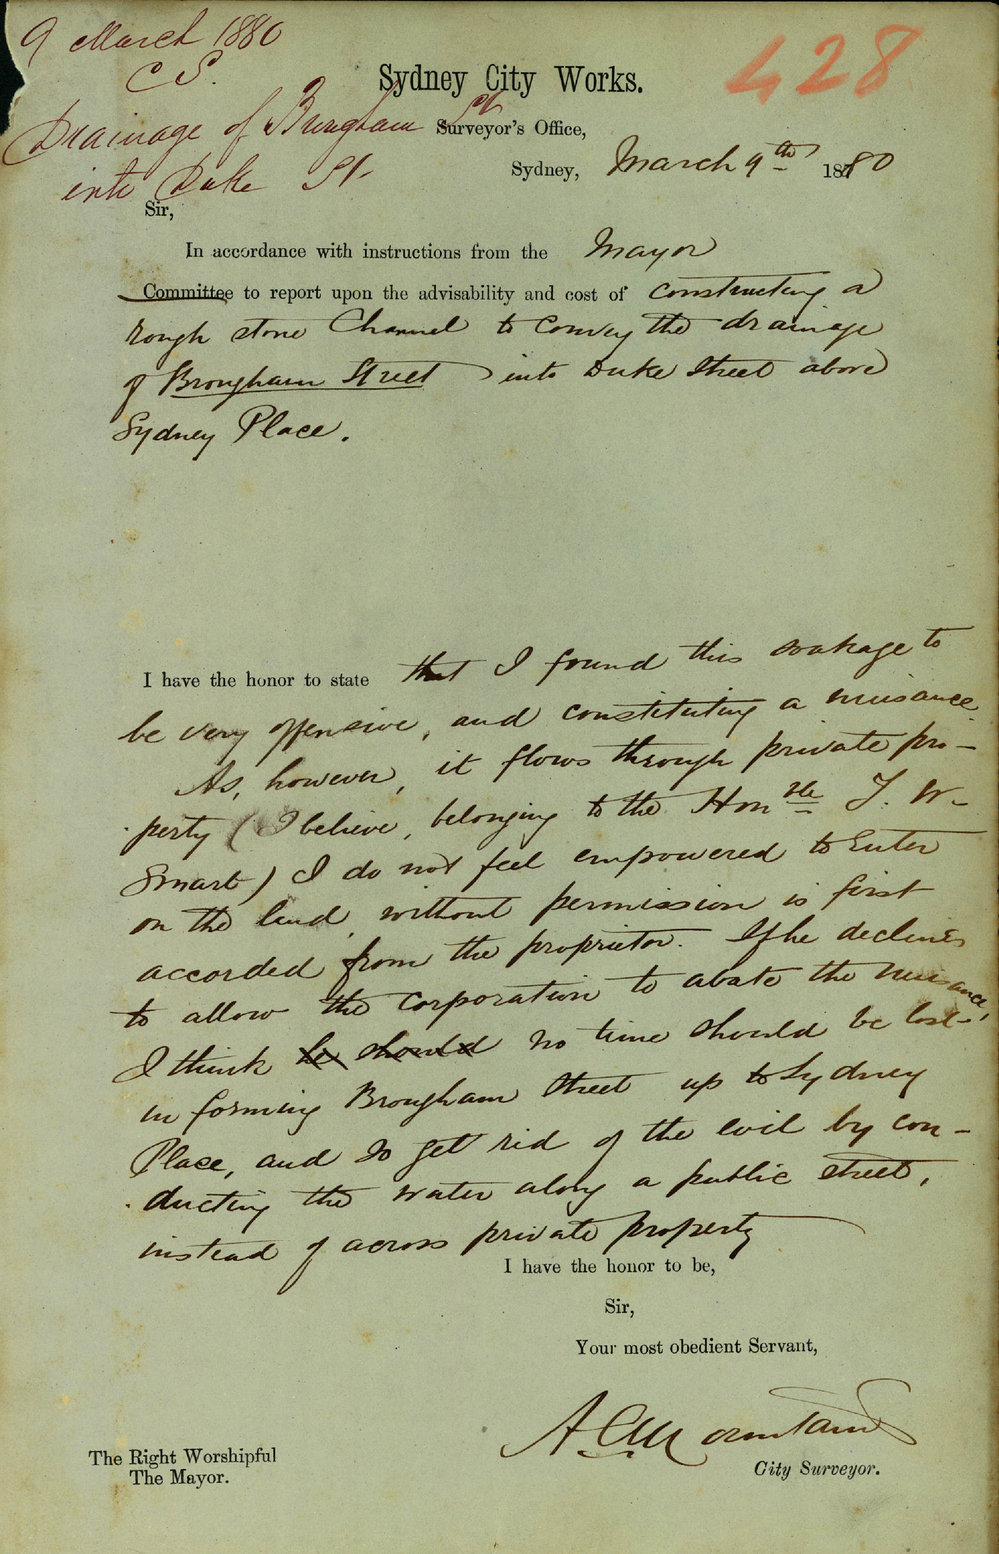 9 March 1880
C S.
428
Sydney City Works.
Drainage of Brougham St
Surveyor's Office,
into Duke St.
Sydney, March 9th 1880
Sir,
In accordance with instructions from the Mayor
Committee to report upon the advisability and cost of constructing a
rough stone Channel to convey the drainage
of Brougham Street into Duke Street above
Sydney Place.
I have the honor to state that I found this soakage to
be very offensive, and constituting a nuisance.
As, however, it flows through private pro-
perty (I believe, belonging to the Honble T. W.
Smart) I do not feel empowered to Enter
on the land, without permission is first
accorded from the proprietor. If he declines
to allow the corporation to abate the nuisance,
I think he should no time should be lost
in forming Brougham Street up to Sydney
Place, and so get rid of the evil by con-
ducting the water along a public street,
instead of across private property
I have the honor to be,
Sir,
Your most obedient Servant,
The Right Worshipful
The Mayor.
City Surveyor.